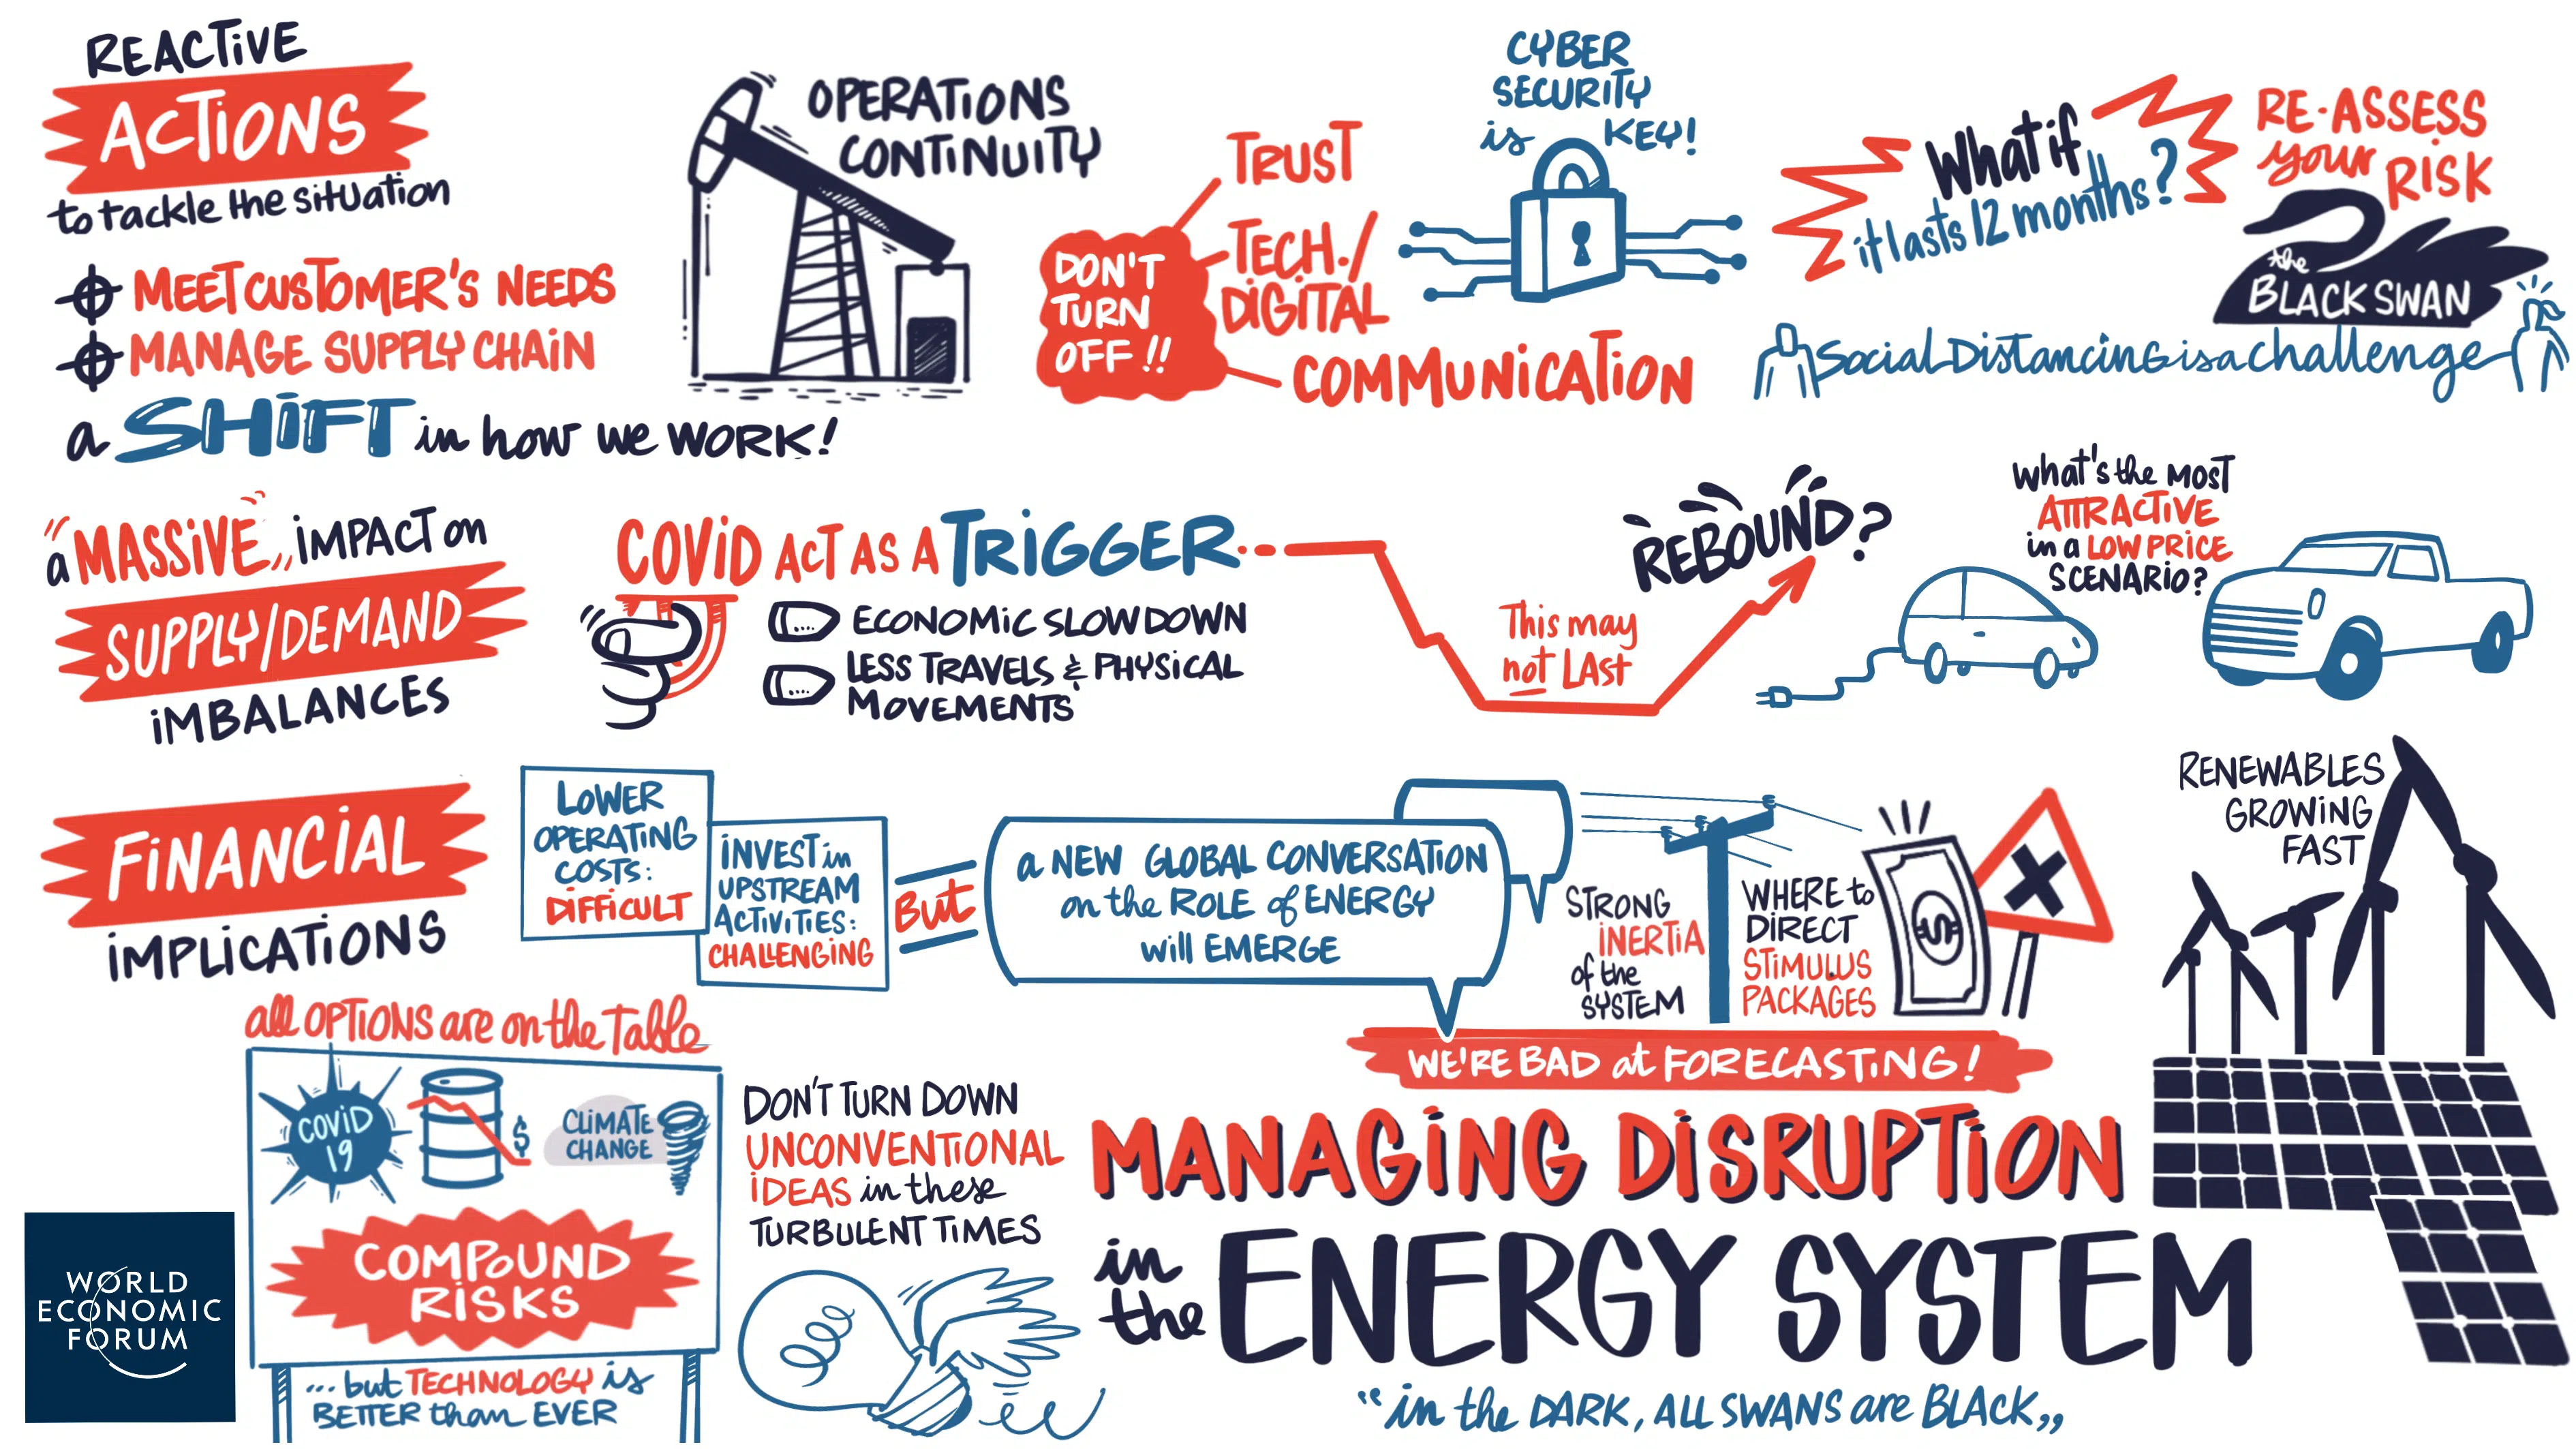 REACTIVE
ACTIONS
to tackle the situation
MEET CUSTOMER'S NEEDS
MANAGE SUPPLY CHAIN
a SHIFT in how we WORK!
OPERATIONS
CONTINUITY
DON'T
TURN
OFF!!
TRUST
TECH./
DIGITAL
COMMUNICATION
CYBER
SECURITY
is KEY!
What if
it lasts 12 months?
RE-ASSESS
your RISK
the
BLACK SWAN
Social Distancing is a challenge
a "MASSIVE,, iMPACT on
SUPPLY/DEMAND
iMBALANCES
COViD ACT AS A TRIGGER
ECONOMIC SLOWDOWN
LESS TRAVELS & PHYSICAL
MOVEMENTS
This may
not LAST
REBOUND?
What's the MOST
ATTRACTIVE
in a LOW PRICE
SCENARIO?
FINANCIAL
IMPLICATIONS
LOWER
OPERATING
COSTS:
DIFFICULT
INVEST in
UPSTREAM
ACTIVITIES:
CHALLENGING
But
a NEW GLOBAL CONVERSATION
on the ROLE of ENERGY
will EMERGE
STRONG
INERTIA
of the
SYSTEM
WHERE to
DIRECT
STIMULUS
PACKAGES
$
RENEWABLES
GROWING
FAST
all OPTIONS are on the Table
COVID
19
$
CLIMATE
CHANGE
COMPOUND
RISKS
... but TECHNOLOGY is
BETTER than EVER
DON'T TURN DOWN
UNCONVENTIONAL
IDEAS in these
TURBULENT TIMES
WE'RE BAD at FORECASTING!
MANAGING DISRUPTION
in the ENERGY SYSTEM
"in the DARK, ALL SWANS are BLACK,,
WORLD
ECONOMIC
FORUM